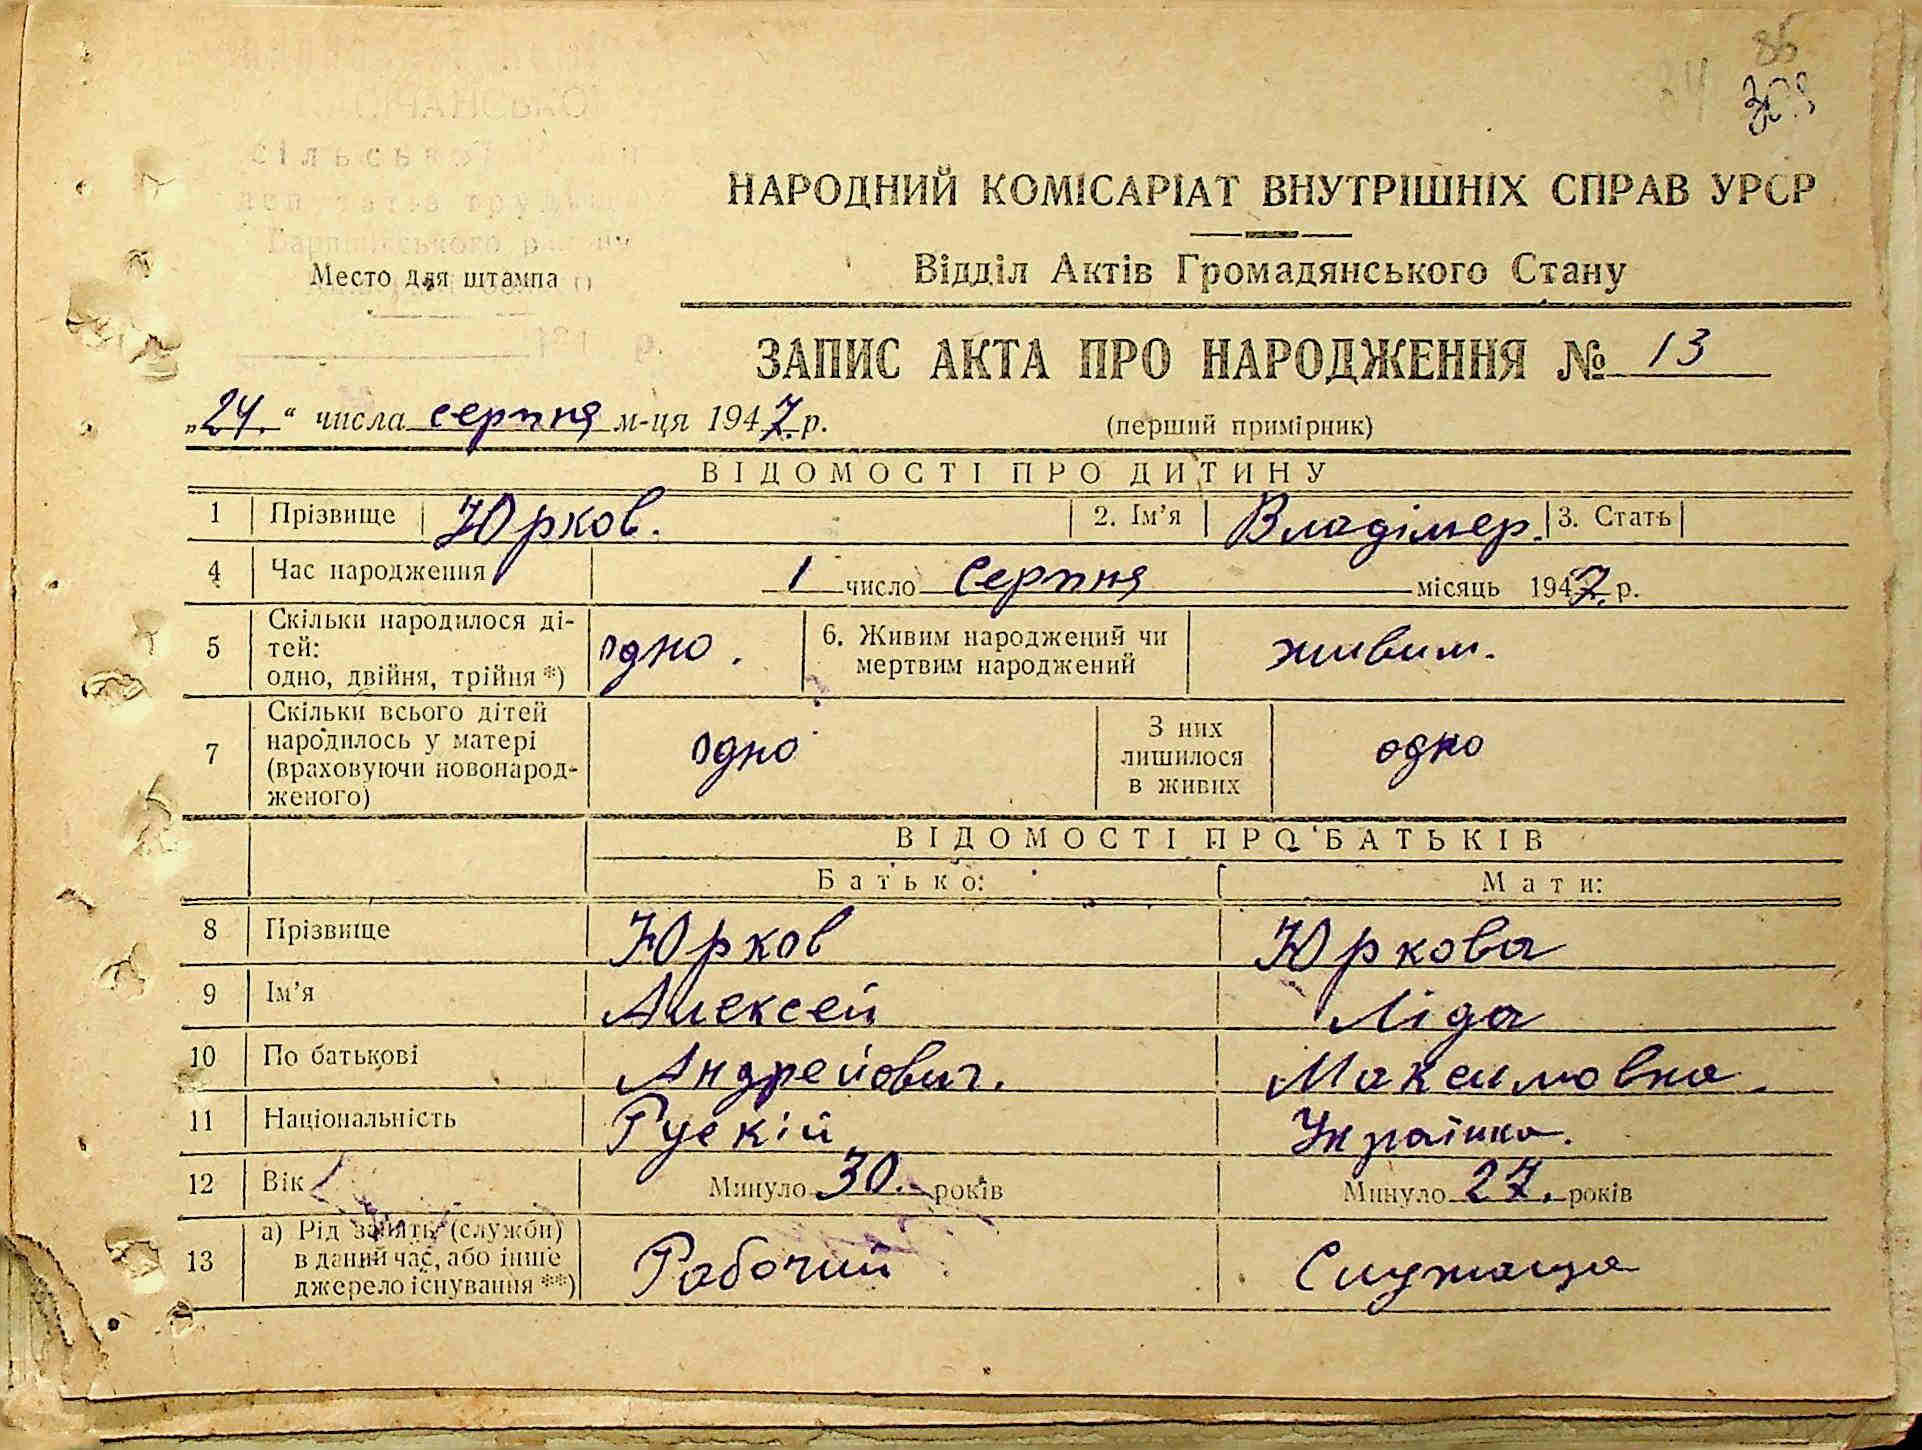 85
НАРОДНИЙ КОМІСАРІАТ ВНУТРІШНІХ СПРАВ УРСР
Відділ Актів Громадянського Стану
Место для штампа
ЗАПИС АКТА ПРО НАРОДЖЕННЯ № 13
„24.“ числа серпня м-ця 1947. р.
(перший примірник)
ВІДОМОСТІ ПРО ДИТИНУ
1 Прізвище Юрков. 2. Ім'я Владімер. 3. Стать
4 Час народження 1 число Серпня місяць 1947. р.
5 Скільки народилося ді-
тей:
одно, двійня, трійня *) одно. 6. Живим народжений чи
мертвим народжений живим.
7 Скільки всього дітей
народилось у матері
(враховуючи новонарод-
женого) одно З них
лишилося
в живих одно
ВІДОМОСТІ ПРО БАТЬКІВ
Батько: Мати:
8 Прізвище Юрков Юркова
9 Ім'я Алексей Ліда
10 По батькові Андрейович. Максимовна.
11 Національність Рускій Українка.
12 Вік Минуло 30. років Минуло 27. років
13 а) Рід занять (служби)
в даний час, або інше
джерело існування **) Рабочий Служаща